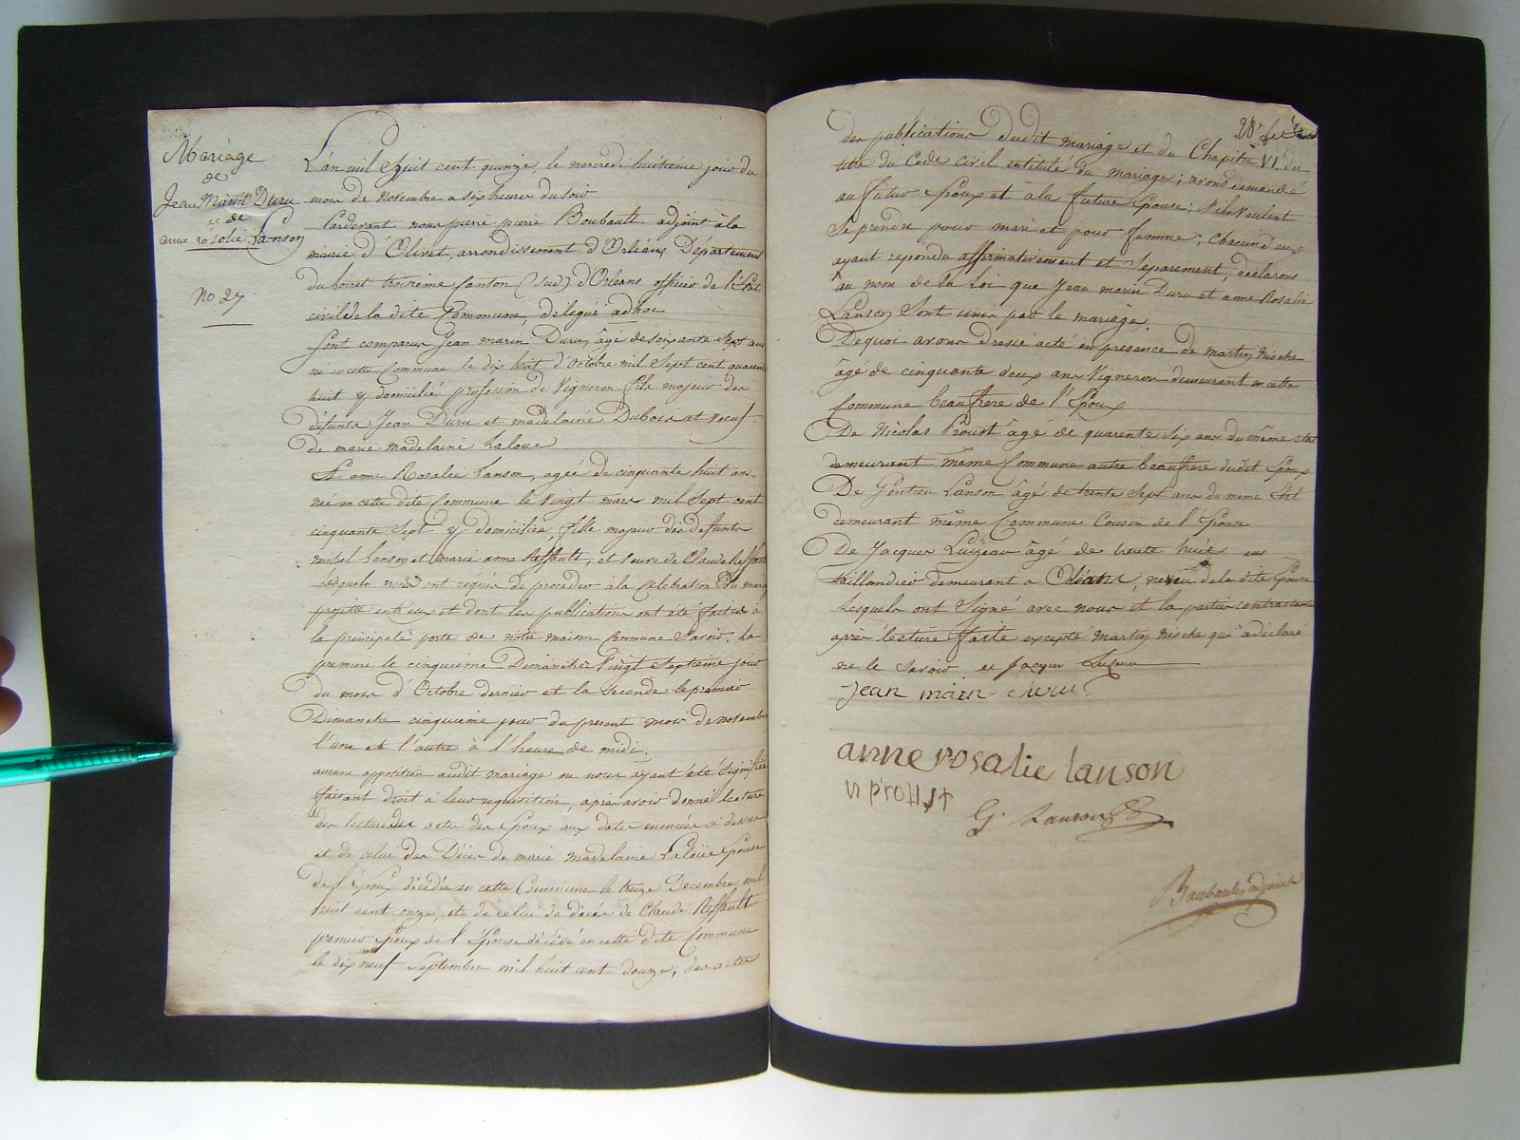 Mariage
de
Jean Marin Duru
et de
anne rosalie Lanson
no 27
L'an mil huit cent quinze, le mercredi huitieme jour du
mois de Novembre a six heures du soir
Pardevant nous pierre Boubault adjoint à la
mairie d'Olivet, arrondissement d'Orléans Département
du Loiret troisieme Canton (Sud) d'Orleans officier de l'Etat
civil de la dite Commune, délégué adhoc
Sont comparus Jean marin Duru, âgé de soixante sept ans
né en cette Commune le dix huit d'Octobre mil Sept cent quarante
huit y domicilié profession de Vigneron fils majeur des
défunts Jean Duru et madelaine Dubois et veuf
De marie madelaine Laloue
Et anne Rosalie Lanson, agée de cinquante huit ans
née en cette dite Commune le Vingt mars mil Sept cent
cinquante Sept y domiciliée, fille majeur des defunts
michel Lanson et marie anne Raffault, et veuve de Claude Raffault
Lesquels nous ont requis de proceder à la Celebration du mariage
projetté entre eux et dont les publications ont été faites à
la principale porte de notre maison Commune Savoir. La
premiere le cinquieme Dimanche Vingt Neuvieme jour
du mois d'Octobre dernier et la Seconde le premier
Dimanche cinquieme jour du present mois de novembre
l'une et l'autre à l'heure de midi.
aucune opposition audit mariage ne nous ayant été Signifiée
faisant droit à leur requisition, après avoir donné lecture
des actes des Epoux aux dates enoncées ci dessus
et de celui du Décès de marie madelaine Laloüe Epouse
de l'Epoux décédée en cette Commune le treize Decembre mil
huit cent onze, et de celui de décès de Claude Raffault
premier Epoux de l'Epouse décédé en cette dite Commune
le dix neuf Septembre mil huit cent douze, des actes
28e
des publications dudit mariage et du Chapitre VI. du
titre du Code civil intitulé du mariage; avons demandé
au futur Epoux et à la future Epouse; S'ils Veulent
Se prendre pour mari et pour femme; chacun d'eux
ayant repondu affirmativement et Séparement, declarons
au nom de la Loi que Jean marin Duru et anne Rosalie
Lanson Sont unis par le mariage.
De quoi avons dressé acte en presence de martin
âgé de cinquante deux ans Vigneron demeurant en cette
Commune beaufrere de l'Epoux
De Nicolas Proust âgé de quarante six ans du même état
demeurant même Commune autre beaufrere dudit Epoux
De Gentien Lanson âgé de trente Sept ans du même Etat
demeurant même Commune Cousin de l'Epouse
De Jacques Luzeau âgé de trente huit ans
taillandier demeurant a Orléans, neveu de la dite Epouse
Lesquels ont Signé avec nous et les parties contractantes
après lecture faite excepté martin qui a déclaré
ne le Savoir et Jacques Luzeau
jean marin duru
anne rosalie lanson
n proust
G. Lanson
Boubault adjoint